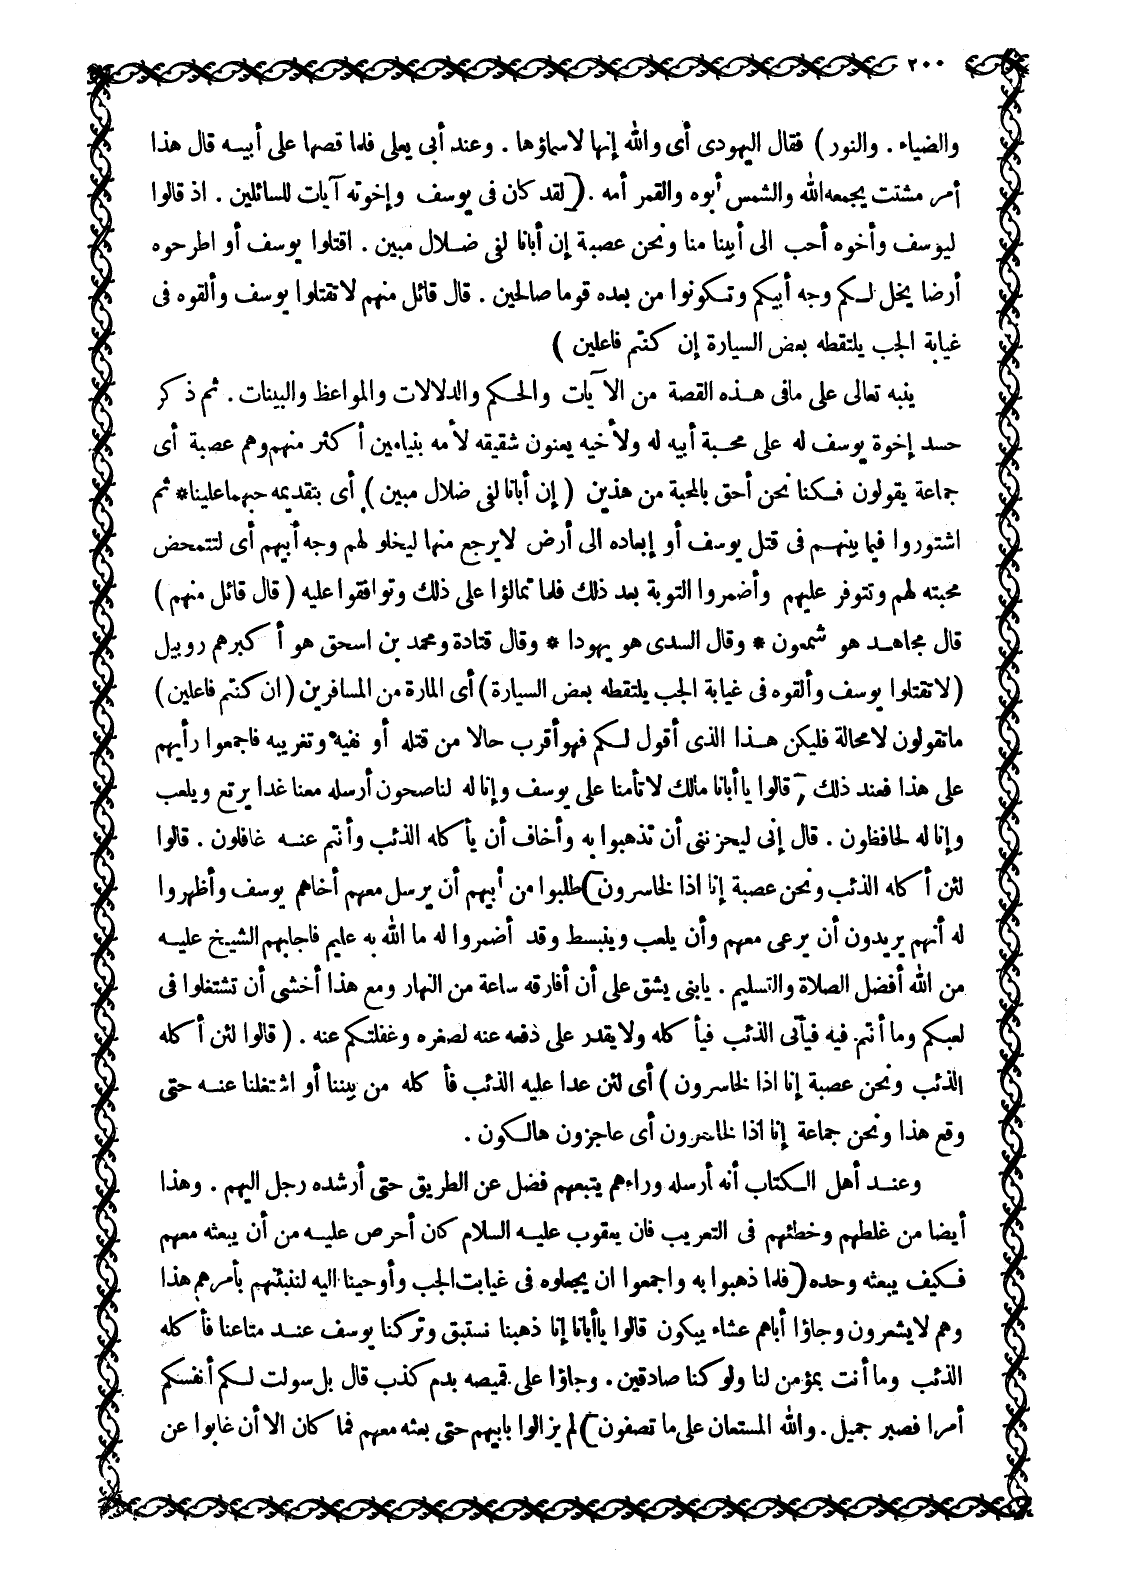 ٢٠٠
والضياء . والنور ) فقال اليهودى أى والله إنها لاسماؤها . وعند أبى يعلى فلما قصها على أبيـه قال هذا
أمر مشتت يجمعه الله والشمس أبوه والقمر أمه . ( لقد كان فى يوسف وإخوته آيات للسائلين . اذ قالوا
ليوسف وأخوه أحب الى أبينا منا ونحن عصبة إن أبانا لفى ضلال مبين . اقتلوا يوسف أو اطرحوه
أرضا يخل لكم وجه أبيكم وتكونوا من بعده قوما صالحين . قال قائل منهم لا تقتلوا يوسف وألقوه فى
غيابة الجب يلتقطه بعض السيارة إن كنتم فاعلين )
ينبه تعالى على مافى هذه القصة من الآيات والحكم والدلالات والمواعظ والبينات . ثم ذكر
حسد إخوة يوسف له على محبة أبيه له ولأخيه يعنون شقيقه لأمه بنيامين أكثر منهم وهم عصبة أى
جماعة يقولون فكنا نحن أحق بالمحبة من هذين ( إن أبانا لفى ضلال مبين ) أى بتقديمه حبهما علينا * ثم
اشتوروا فيما بينهم فى قتل يوسف أو إبعاده الى أرض لا يرجع منها ليخلو لهم وجه أبيهم أى لتتمحض
محبته لهم وتتوفر عليهم وأضمروا التوبة بعد ذلك فلما تمالؤا على ذلك وتوافقوا عليه ( قال قائل منهم )
قال مجاهد هو شمعون * وقال السدى هو يهودا * وقال قتادة ومحمد بن اسحق هو أكبرهم روبيل
( لا تقتلوا يوسف وألقوه فى غيابة الجب يلتقطه بعض السيارة ) أى المارة من المسافرين ( ان كنتم فاعلين )
ماتقولون لامحالة فليكن هذا الذى أقول لكم فهو أقرب حالا من قتله أو نفيه وتغريبه فاجمعوا رأيهم
على هذا فعند ذلك ( قالوا ياأبانا مالك لا تأمنا على يوسف وإنا له لناصحون أرسله معنا غدا يرتع ويلعب
وإنا له لحافظون . قال إنى ليحزننى أن تذهبوا به وأخاف أن يأكله الذئب وأنتم عنه غافلون . قالوا
لئن أكله الذئب ونحن عصبة إنا اذا لخاسرون ) طلبوا من أبيهم أن يرسل معهم أخاهم يوسف وأظهروا
له أنهم يريدون أن يرعى معهم وأن يلعب وينبسط وقد أضمروا له ما الله به عليم فاجابهم الشيخ عليه
من الله أفضل الصلاة والتسليم . يابنى يشق على أن أفارقه ساعة من النهار ومع هذا أخشى أن تشتغلوا فى
لعبكم وما أنتم فيه فيأتى الذئب فيأكله ولا يقدر على دفعه عنه لصغره وغفلتكم عنه . ( قالوا لئن أكله
الذئب ونحن عصبة إنا اذا لخاسرون ) أى لئن عدا عليه الذئب فأكله من بيننا أو اشتغلنا عنه حتى
وقع هذا ونحن جماعة إنا اذا لخاسرون أى عاجزون هالكون .
وعند أهل الكتاب أنه أرسله وراءهم يتبعهم فضل عن الطريق حتى أرشده رجل اليهم . وهذا
أيضا من غلطهم وخطئهم فى التعريب فان يعقوب عليه السلام كان أحرص عليه من أن يبعثه معهم
فكيف يبعثه وحده ( فلما ذهبوا به واجمعوا ان يجعلوه فى غيابت الجب وأوحينا اليه لتنبئنهم بأمرهم هذا
وهم لا يشعرون وجاؤا أباهم عشاء يبكون قالوا ياأبانا إنا ذهبنا نستبق وتركنا يوسف عند متاعنا فأكله
الذئب وما أنت بمؤمن لنا ولو كنا صادقين . وجاؤا على قميصه بدم كذب قال بل سولت لكم أنفسكم
أمرا فصبر جميل . والله المستعان على ما تصفون ) لم يزالوا بابيهم حتى بعثه معهم فما كان الا أن غابوا عن